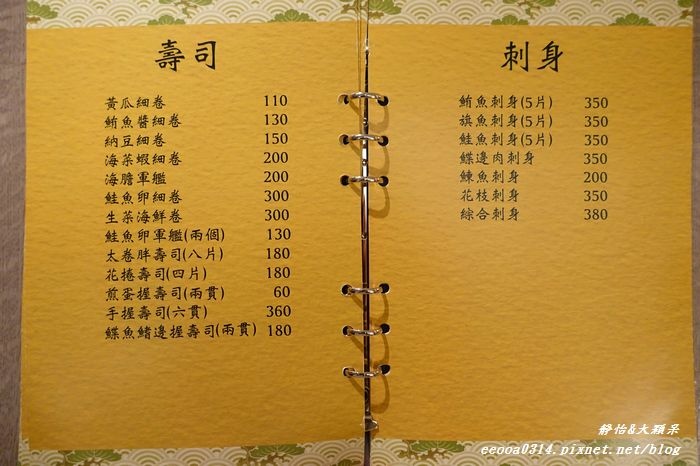 壽司
黃瓜細卷 110
鮪魚醬細卷 130
納豆細卷 150
海菜蝦細卷 200
海膽軍艦 200
鮭魚卵細卷 300
生菜海鮮卷 300
鮭魚卵軍艦(兩個) 130
太卷胖壽司(八片) 180
花捲壽司(四片) 180
煎蛋握壽司(兩貫) 60
手握壽司(六貫) 360
鰈魚鰭邊握壽司(兩貫) 180
刺身
鮪魚刺身(5片) 350
旗魚刺身(5片) 350
鮭魚刺身(5片) 350
鰈邊肉刺身 350
鰊魚刺身 200
花枝刺身 350
綜合刺身 380
靜怡&大顆呆
eeooa0314.pixnet.net/blog